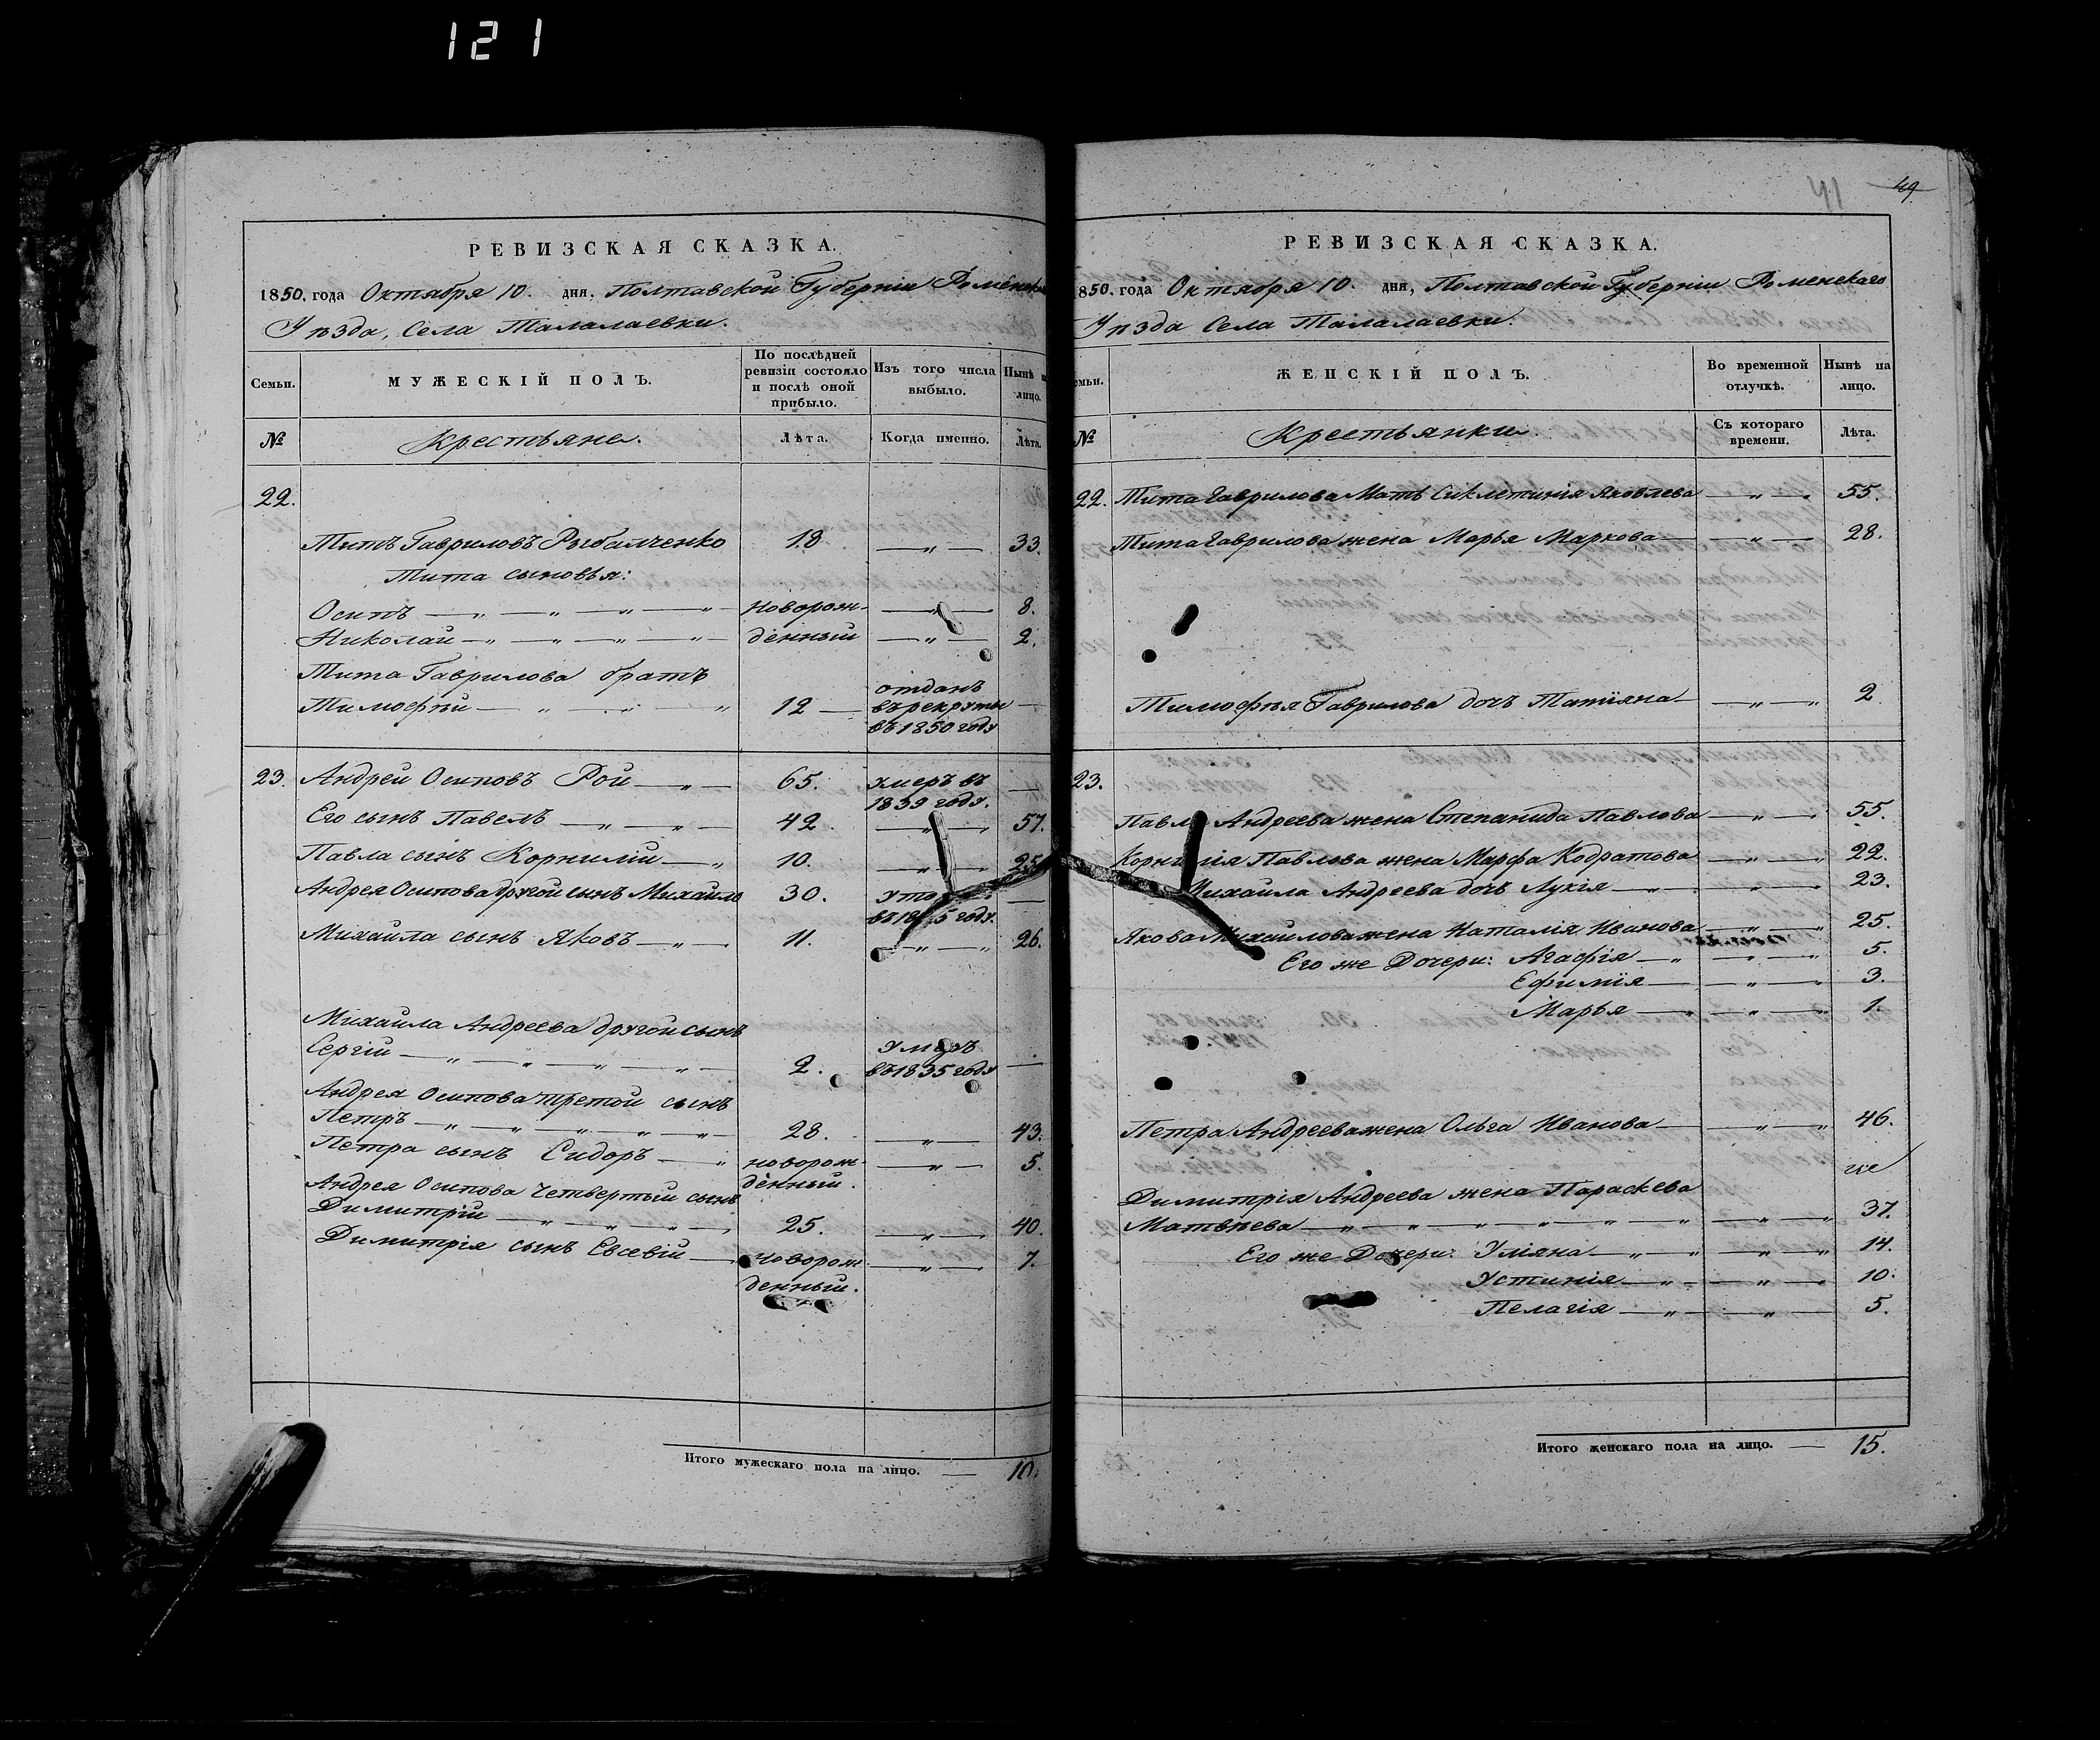 121
РЕВИЗСКАЯ СКАЗКА.
1850. года Октября 10. дня, Полтавской Губерніи
Уѣзда, Села Талалаевки.
Семьи.
МУЖЕСКІЙ ПОЛЪ.
По послѣдней ревизіи состояло и послѣ оной прибыло.
Изъ того числа выбыло.
Нынѣ на лицо.
№
Крестьяне.
Лѣта.
Когда именно.
Лѣта.
22.
Титъ Гавриловъ Рыбалченко 18 — „ — 33.
Тита сыновья:
Осипъ — „ — „ — „ — „ новорож- — „ — 8.
Николай — „ — „ — „ — „ денный — „ — 2.
Тита Гаврилова братъ
Тимофѣй — „ — „ — „ 12 — отданъ въ рекруты въ 1850 году —
23. Андрей Осиповъ Рой — „ — 65. умеръ въ 1839 году. —
Его сынъ Павелъ — „ — „ — 42. — „ — 57.
Павла сынъ Корнилій — „ 10. — „ — 25.
Андрея Осипова другой сынъ Михайло 30. —
Михайла сынъ Яковъ — „ — 11. — „ — „ 26.
Михайла Андреева другой сынъ
Сергій — „ — „ — „ — „ — 2. умеръ въ 1835 году —
Андрея Осипова третой сынъ
Петръ — „ — „ — „ — „ — „ 28. — „ — 43.
Петра сынъ Сидоръ — „ новорож-денный. — „ — 5.
Андрея Осипова четвертый сынъ
Димитрій — „ — „ — „ — 25. — „ — 40.
Димитрія сынъ Евсевій — новорож-денный. — „ — 7.
Итого мужескаго пола на лицо. — 10.
49
РЕВИЗСКАЯ СКАЗКА.
1850. года Октября 10. дня, Полтавской Губерніи Роменскаго
Уѣзда Села Талалаевки.
Семьи.
ЖЕНСКІЙ ПОЛЪ.
Во временной отлучкѣ.
Нынѣ на лицо.
№
Крестьянки.
Съ котораго времени.
Лѣта.
22. Тита Гаврилова Мать Сиклетинія Яковлева — „ — 55.
Тита Гаврилова жена Марья Маркова — „ — 28.
Тимофѣя Гаврилова дочь Татіяна — „ — „ 2
23.
Павла Андреева жена Степанида Павлова — „ — 55.
Корнилія Павлова жена Марфа Кодратова — „ — 22.
Михайла Андреева дочь Лукія — „ — „ — 23.
Якова Михайлова жена Наталія Иванова — „ — 25.
Его же Дочери: Агафія — „ — „ — „ 5.
Ефимія — „ — „ 3.
Марья — „ — „ — „ 1.
Петра Андреева жена Ольга Иванова — „ — „ 46.
Димитрія Андреева жена Параскева
Матвѣева — „ — „ — „ — „ — „ — „ 37.
Его же Дочери: Уліяна — „ — „ — „ — „ 14.
Устинія — „ — „ — 10.
Пелагія — „ — „ — 5.
Итого женскаго пола на лицо. — 15.